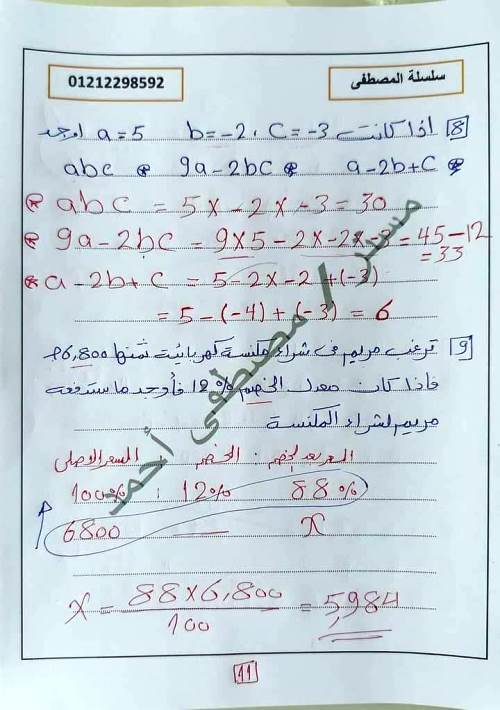 سلسلة المصطفى
01212298592
8 اذا كانت a = 5 b = -2 ، C = -3 اوجد
* a - 2b + C * 9a - 2bc * abc
* abc = 5 x -2 x -3 = 30
* 9a - 2bc = 9x5 - 2x-2x-3 = 45 - 12
= 33
* a - 2b + c = 5 - 2 x -2 + (-3)
= 5 - (-4) + (-3) = 6
9 ترغب مريم فى شراء مكنسة كهربائية ثمنها 6,800
فاذا كان معدل الخصم 12% فأوجد ما ستدفعه
مريم لشراء المكنسة
السعر الاصلى : الخصم : السعر بعد الخصم
100% : 12% 88%
6800 — x
x = 88 x 6,800 / 100 = 5,984
مستر / مصطفى أحمد
11